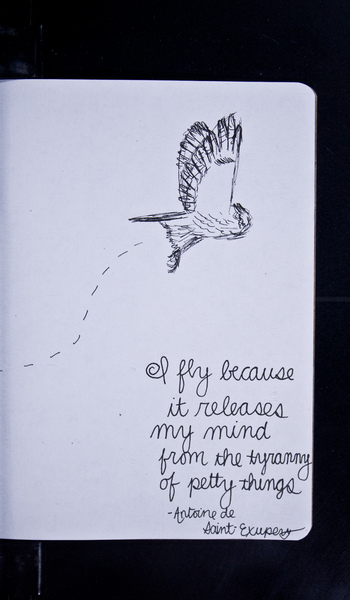 I fly because
it releases
my mind
from the tyranny
of petty things
-Antoine de
Saint-Exupery